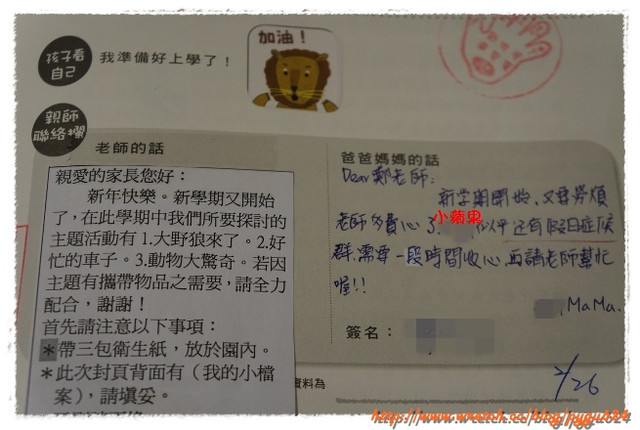 孩子看
自己
我準備好上學了！
加油！
親師
聯絡欄
老師的話
親愛的家長您好：
新年快樂。新學期又開始
了，在此學期中我們所要探討的
主題活動有 1.大野狼來了。2.好
忙的車子。3.動物大驚奇。若因
主題有攜帶物品之需要，請全力
配合，謝謝！
首先請注意以下事項：
*帶三包衛生紙，放於園內。
*此次封頁背面有（我的小檔
案），請填妥。
爸爸媽媽的話
Dear鄭老師：
新學期開始、又要勞煩
老師多費心了.小蘋果似乎還有假日症候
群.需要一段時間收心.再請老師幫忙
喔!!
.MaMa.
簽名：
2/26
資料為
http://www.wretch.cc/blog/pygu824